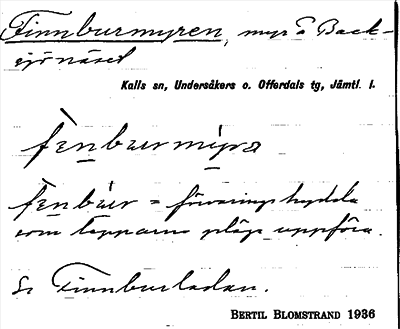 Finnburmyren, myr å Back-
sjönäset
Kalls sn, Undersåkers o. Offerdals tg, Jämtl. l.
fenburmyra
fenbúr = förvaringshydda
som lapparna pläga uppföra.
Se Finnburladan.
BERTIL BLOMSTRAND 1936